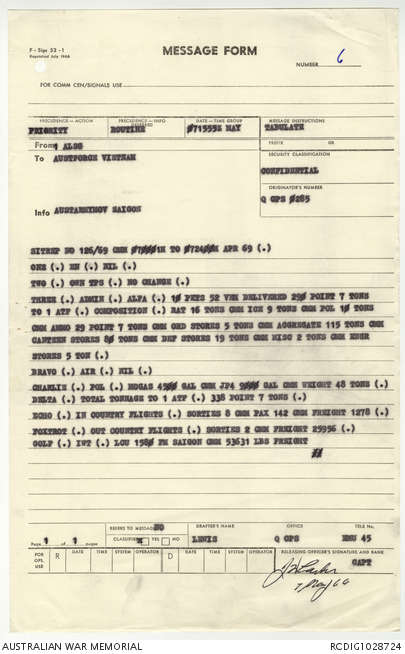 F - Sigs 52 -1
Reprinted July 1966
MESSAGE FORM
NUMBER 6
FOR COMM CEN/SIGNALS USE
PRECEDENCE — ACTION PRECEDENCE — INFO DATE — TIME GROUP MESSAGE INSTRUCTIONS
PRIORITY ROUTINE 071555Z MAY TABULATE
From 1 ALSG PREFIX GR
To AUSTFORCE VIETNAM SECURITY CLASSIFICATION
CONFIDENTIAL
ORIGINATOR'S NUMBER
Q OPS 0285
Info AUSTARMYMOV SAIGON
SITREP NO 126/69 CMM TO APR 69 (.)
ONE (.) EN (.) NIL (.)
TWO (.) OWN TPS (.) NO CHANGE (.)
THREE (.) ADMIN (.) ALFA (.) 10 PKTS 52 VEH DELIVERED 290 POINT 7 TONS
TO 1 ATF (.) COMPOSITION (.) RAT 16 TONS CMM ICE 9 TONS CMM POL 10 TONS
CMM AMMO 29 POINT 7 TONS CMM ORD STORES 5 TONS CMM AGGREGATE 115 TONS CMM
CANTEEN STORES 80 TONS CMM DEF STORES 19 TONS CMM MISC 2 TONS CMM ENGR
STORES 5 TON (.)
BRAVO (.) AIR (.) NIL (.)
CHARLIE (.) POL (.) MOGAS 4500 GAL CMM JP4 9000 GAL CMM WEIGHT 48 TONS (.)
DELTA (.) TOTAL TONNAGE TO 1 ATF (.) 338 POINT 7 TONS (.)
ECHO (.) IN COUNTRY FLIGHTS (.) SORTIES 8 CMM PAX 142 CMM FREIGHT 1278 (.)
FOXTROT (.) OUT COUNTRY FLIGHTS (.) SORTIES 2 CMM FREIGHT 25956 (.)
GOLF (.) IWT (.) LCU 1580 FM SAIGON CMM 53631 LBS FREIGHT
REFERS TO MESSAGE NO DRAFTER'S NAME OFFICE TELE No.
Page 1 of 1 pages CLASSIFIED YES NO LEWIS Q OPS EMU 45
FOR OPS. USE R DATE TIME SYSTEM OPERATOR D DATE TIME SYSTEM OPERATOR RELEASING OFFICER'S SIGNATURE AND RANK
CAPT
7 May 66
AUSTRALIAN WAR MEMORIAL RCDIG1028724